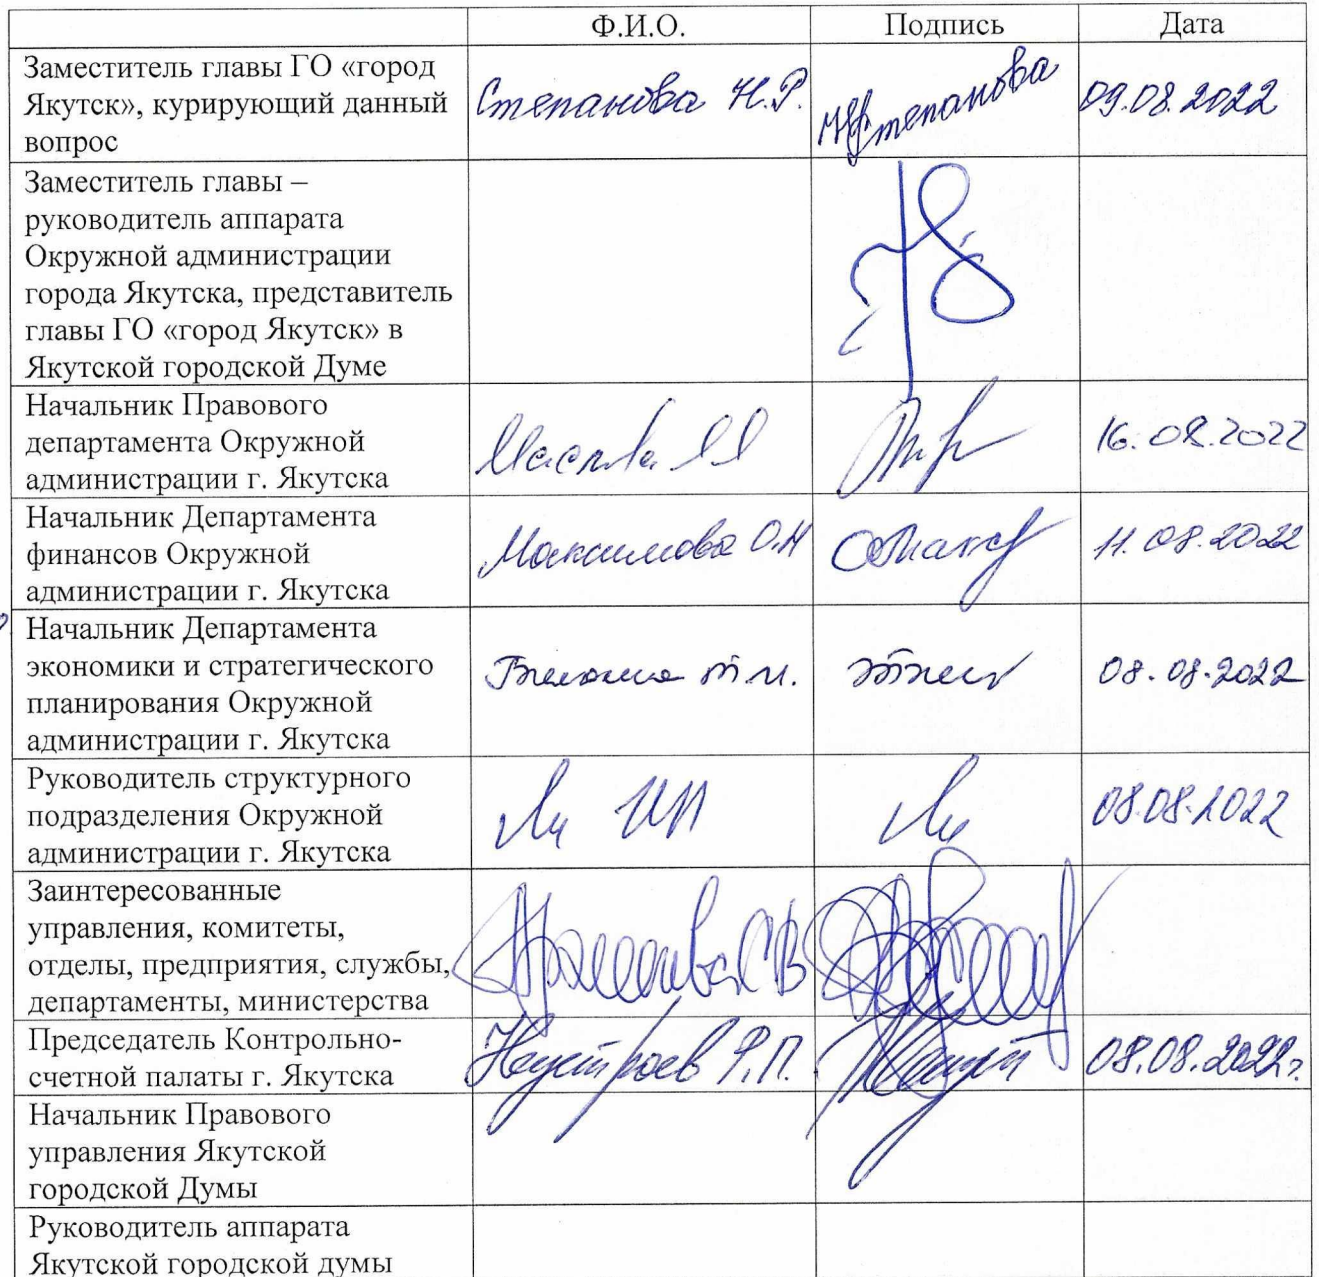 Ф.И.О. Подпись Дата
Заместитель главы ГО «город
Якутск», курирующий данный
вопрос
Степанова Н.Р. Степанова 09.08.2022
Заместитель главы –
руководитель аппарата
Окружной администрации
города Якутска, представитель
главы ГО «город Якутск» в
Якутской городской Думе
Начальник Правового
департамента Окружной
администрации г. Якутска
16.08.2022
Начальник Департамента
финансов Окружной
администрации г. Якутска
Максимова О.Н 11.08.2022
Начальник Департамента
экономики и стратегического
планирования Окружной
администрации г. Якутска
08.08.2022
Руководитель структурного
подразделения Окружной
администрации г. Якутска
Ли Ли 08.08.2022
Заинтересованные
управления, комитеты,
отделы, предприятия, службы,
департаменты, министерства
Председатель Контрольно-
счетной палаты г. Якутска
Неустроев Р.П. 08.08.2022г.
Начальник Правового
управления Якутской
городской Думы
Руководитель аппарата
Якутской городской думы